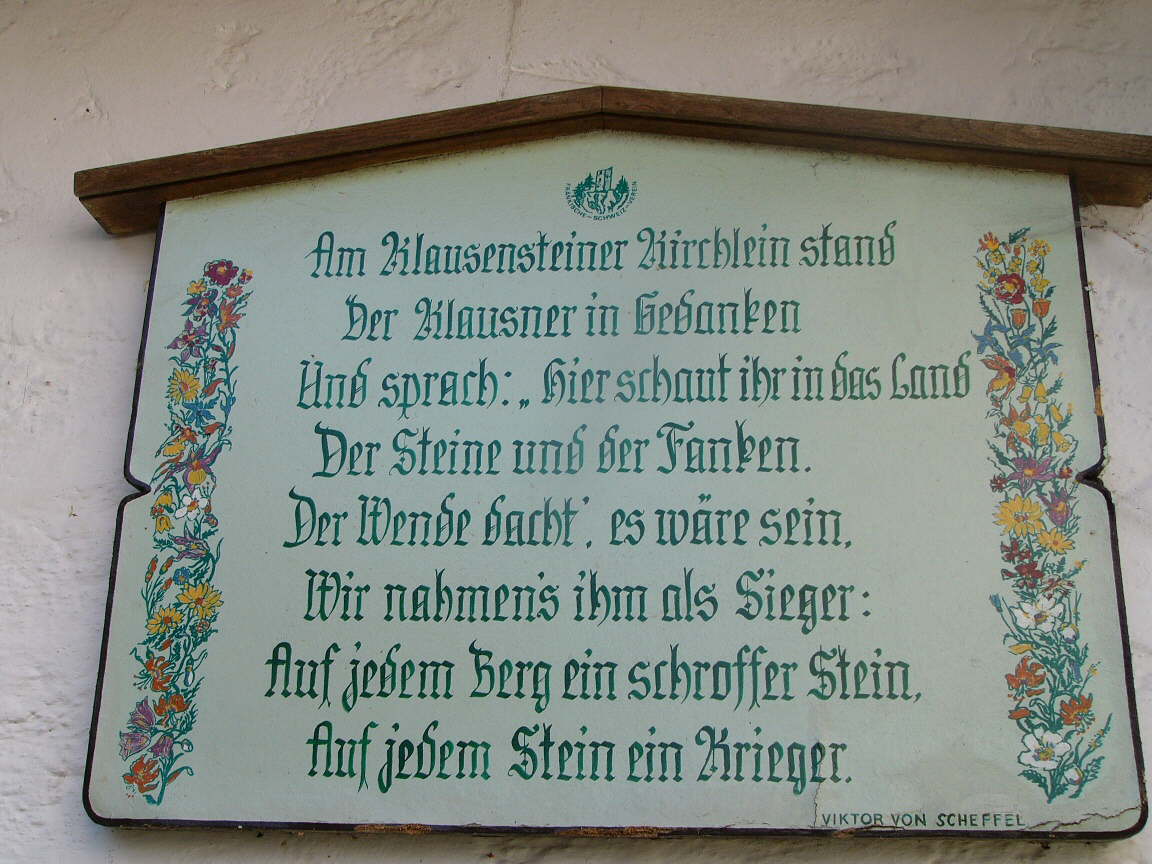 FRÄNKISCHE-SCHWEIZ-VEREIN
Am Klausensteiner Kirchlein stand
Der Klausner in Gedanken
Und sprach: „Hier schaut ihr in das Land
Der Steine und der Fanken.
Der Wende dacht', es wäre sein,
Wir nahmen's ihm als Sieger:
Auf jedem Berg ein schroffer Stein,
Auf jedem Stein ein Krieger.
VIKTOR VON SCHEFFEL